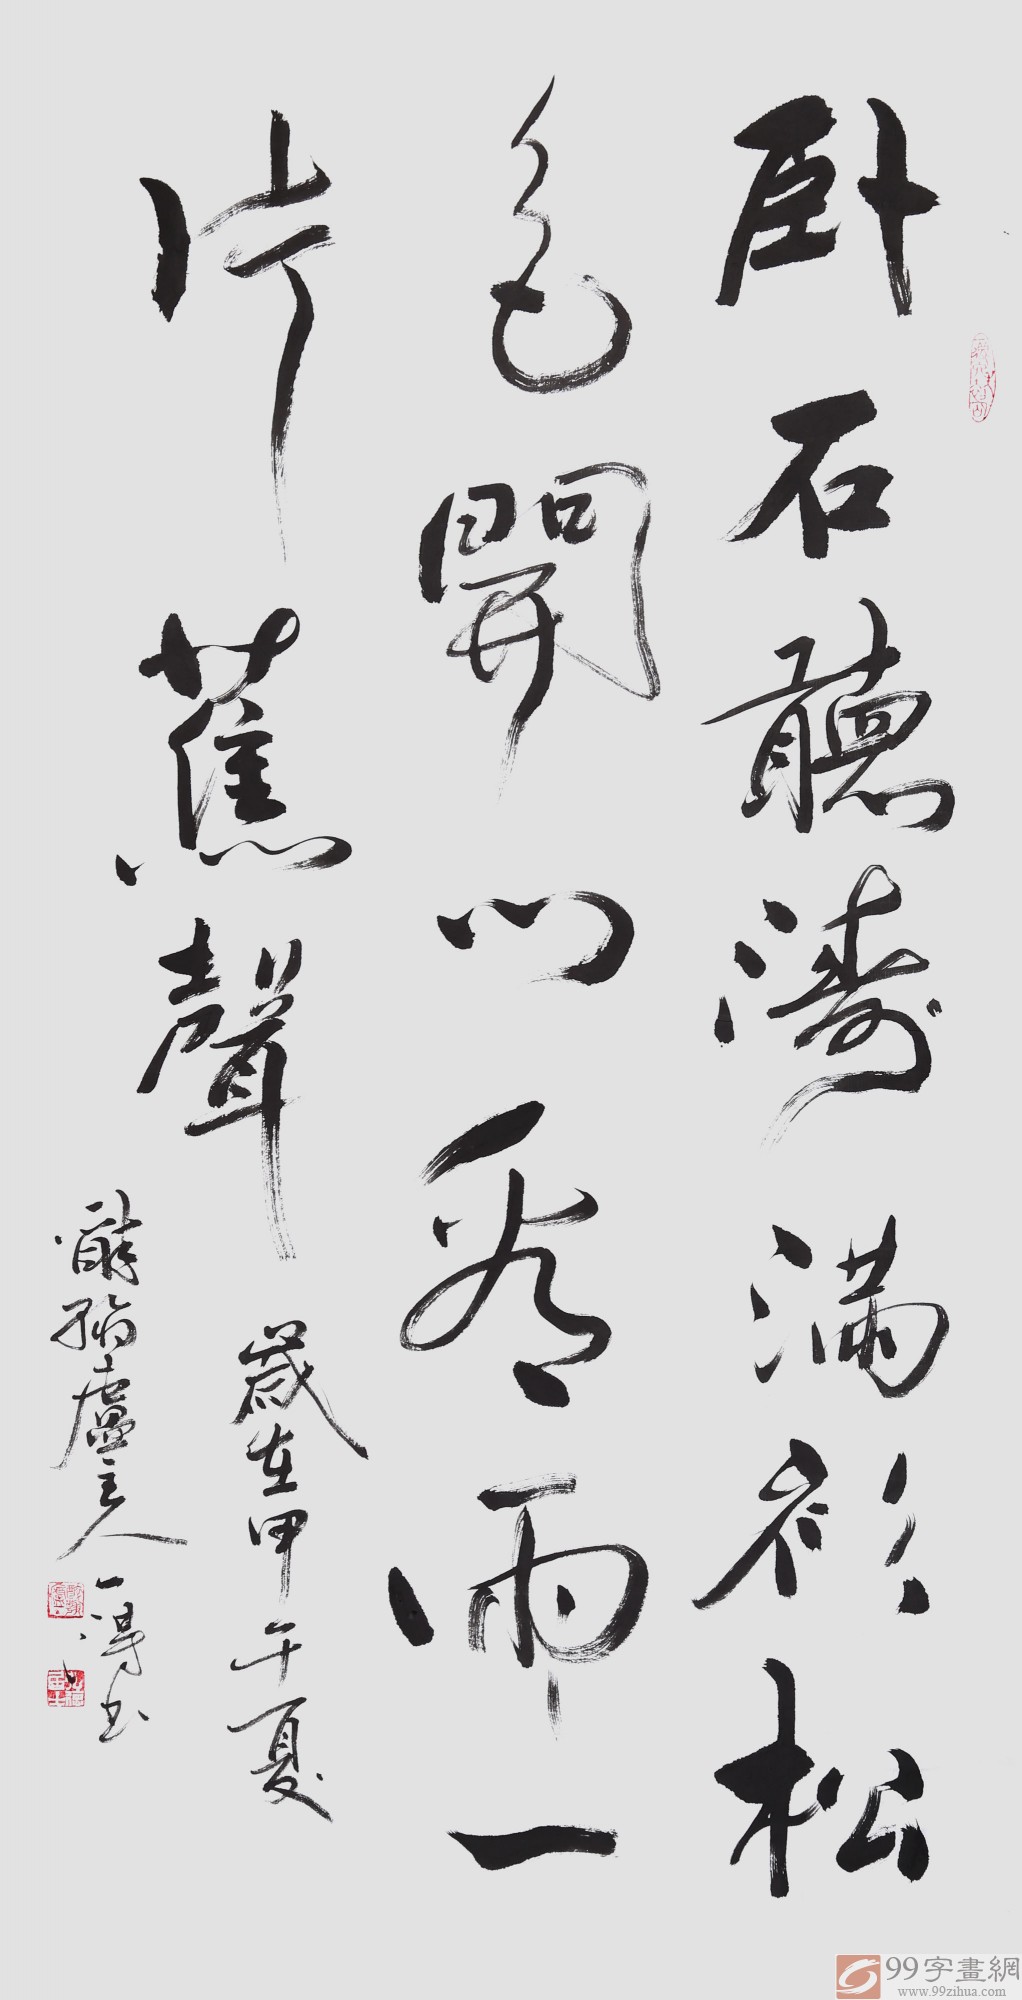 卧石聽濤滿衫松
色開門看雨一
片蕉聲
歲在甲午夏
廬主人一得书
99字畫網
www.99zihua.com